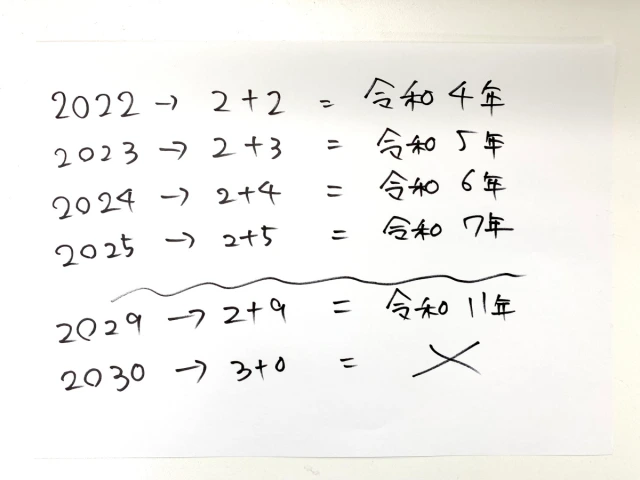 2022 → 2+2 = 令和4年
2023 → 2+3 = 令和5年
2024 → 2+4 = 令和6年
2025 → 2+5 = 令和7年
2029 → 2+9 = 令和11年
2030 → 3+0 = ×